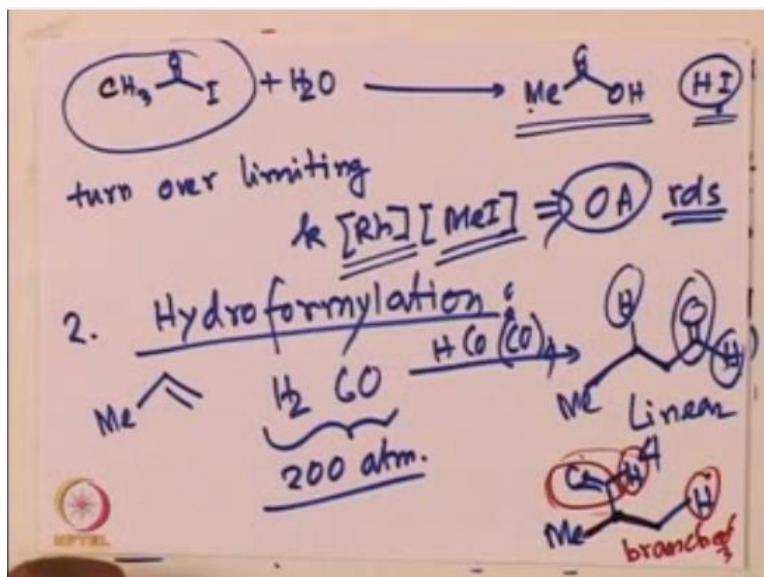 CH3 O I + H2O → Me O OH HI
turn over limiting
k [Rh] [MeI] ⇒ OA rds
2. Hydroformylation:
Me H2 CO HCo(CO)4 → H O H
Me Linear
200 atm.
O H 4
Me H
branched 3
NPTEL